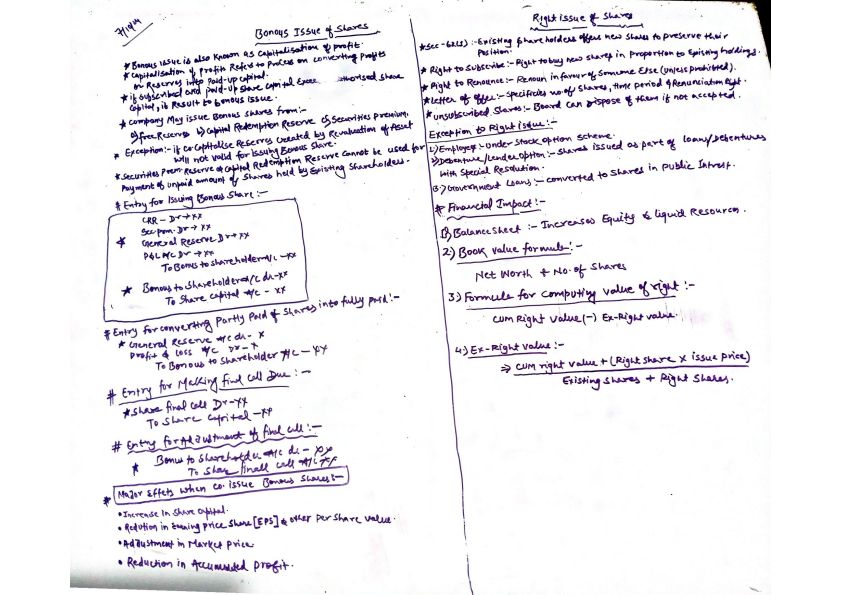 7/9/24
Bonous Issue of Shares
* Bonous issue is also known as Capitalisation of profit.
* Capitalisation of profits Refers to Process on converting profits
on Reserves into Paid-up capital.
* if Subscribed and paid-up Share Capital Excee thorised share
Capital, it Result to bonous Issue.
* company May issue Bonous shares from:-
a) free Reserves b) Capital Redemption Reserve c) Securities Premium.
* Exception:- if co. Capitalise Reserves created by Revaluation of Asset
will not valid for Issuing Bonous Share.
* Securities Prem. Reserve & Capital Redemption Reserve Cannot be used for
Payment of unpaid amount of Shares held by Existing Shareholders.
# Entry for Issuing Bonous Share:-
CRR - Dr → xx
Sec. prem. Dr → xx
* General Reserve Dr → xx
P&L A/c Dr → xx
To Bonus to shareholder A/c - xx
* Bonous to Shareholder A/c dr - xx
To Share Capital A/c - xx
# Entry for converting Partly Paid of Shares into fully Paid:-
* General Reserve A/c dr - x
Profit & Loss A/c Dr - x
To Bonous to Shareholder A/c - xx
# Entry for Making final call Due:-
* Share final call Dr - xx
To Share Capital - xx
# Entry for Addustment of final call:-
* Bonus to Shareholder A/c dr - xx
To Share finall call A/c xx
# Major Effets when co. issue Bonous Shares:-
• Increase in Share Capital.
• Redution in Earning Price Share [EPS] & other Per Share value.
• Addustment in Market Price
• Reduction in Accumulated Profit.
Right issue of Shares
* Sec-62(1):- Existing Shareholders offers new shares to preserve their
Position.
* Right to Subscribe:- Right to buy new shares in proportion to Existing holdings.
* Right to Renounce:- Renoun in favur of Someone Else (unless prohibited).
* Letter of offer:- Specificies no. of Shares, time period & Renunciation Right.
* unsubscribed Shares:- Board Can dispose of them if not accepted.
Exception to Right issue:-
1) Employees:- under Stock option Scheme.
2) Debenture/Lender option:- Shares issued as part of loans/Debentures
with Special Resolution.
3) Government Loans:- converted to Shares in Public Intrest.
# Financial Impact:-
1) Balance Sheet:- Increases Equity & liquid Resources.
2) Book value formula:-
Net Worth ÷ No. of Shares
3) Formula for computing value of right:-
CUM Right value (-) Ex-Right value.
4) Ex-Right value:-
⇒ CUM right value + (Right share x issue price)
Existing Shares + Right Shares.